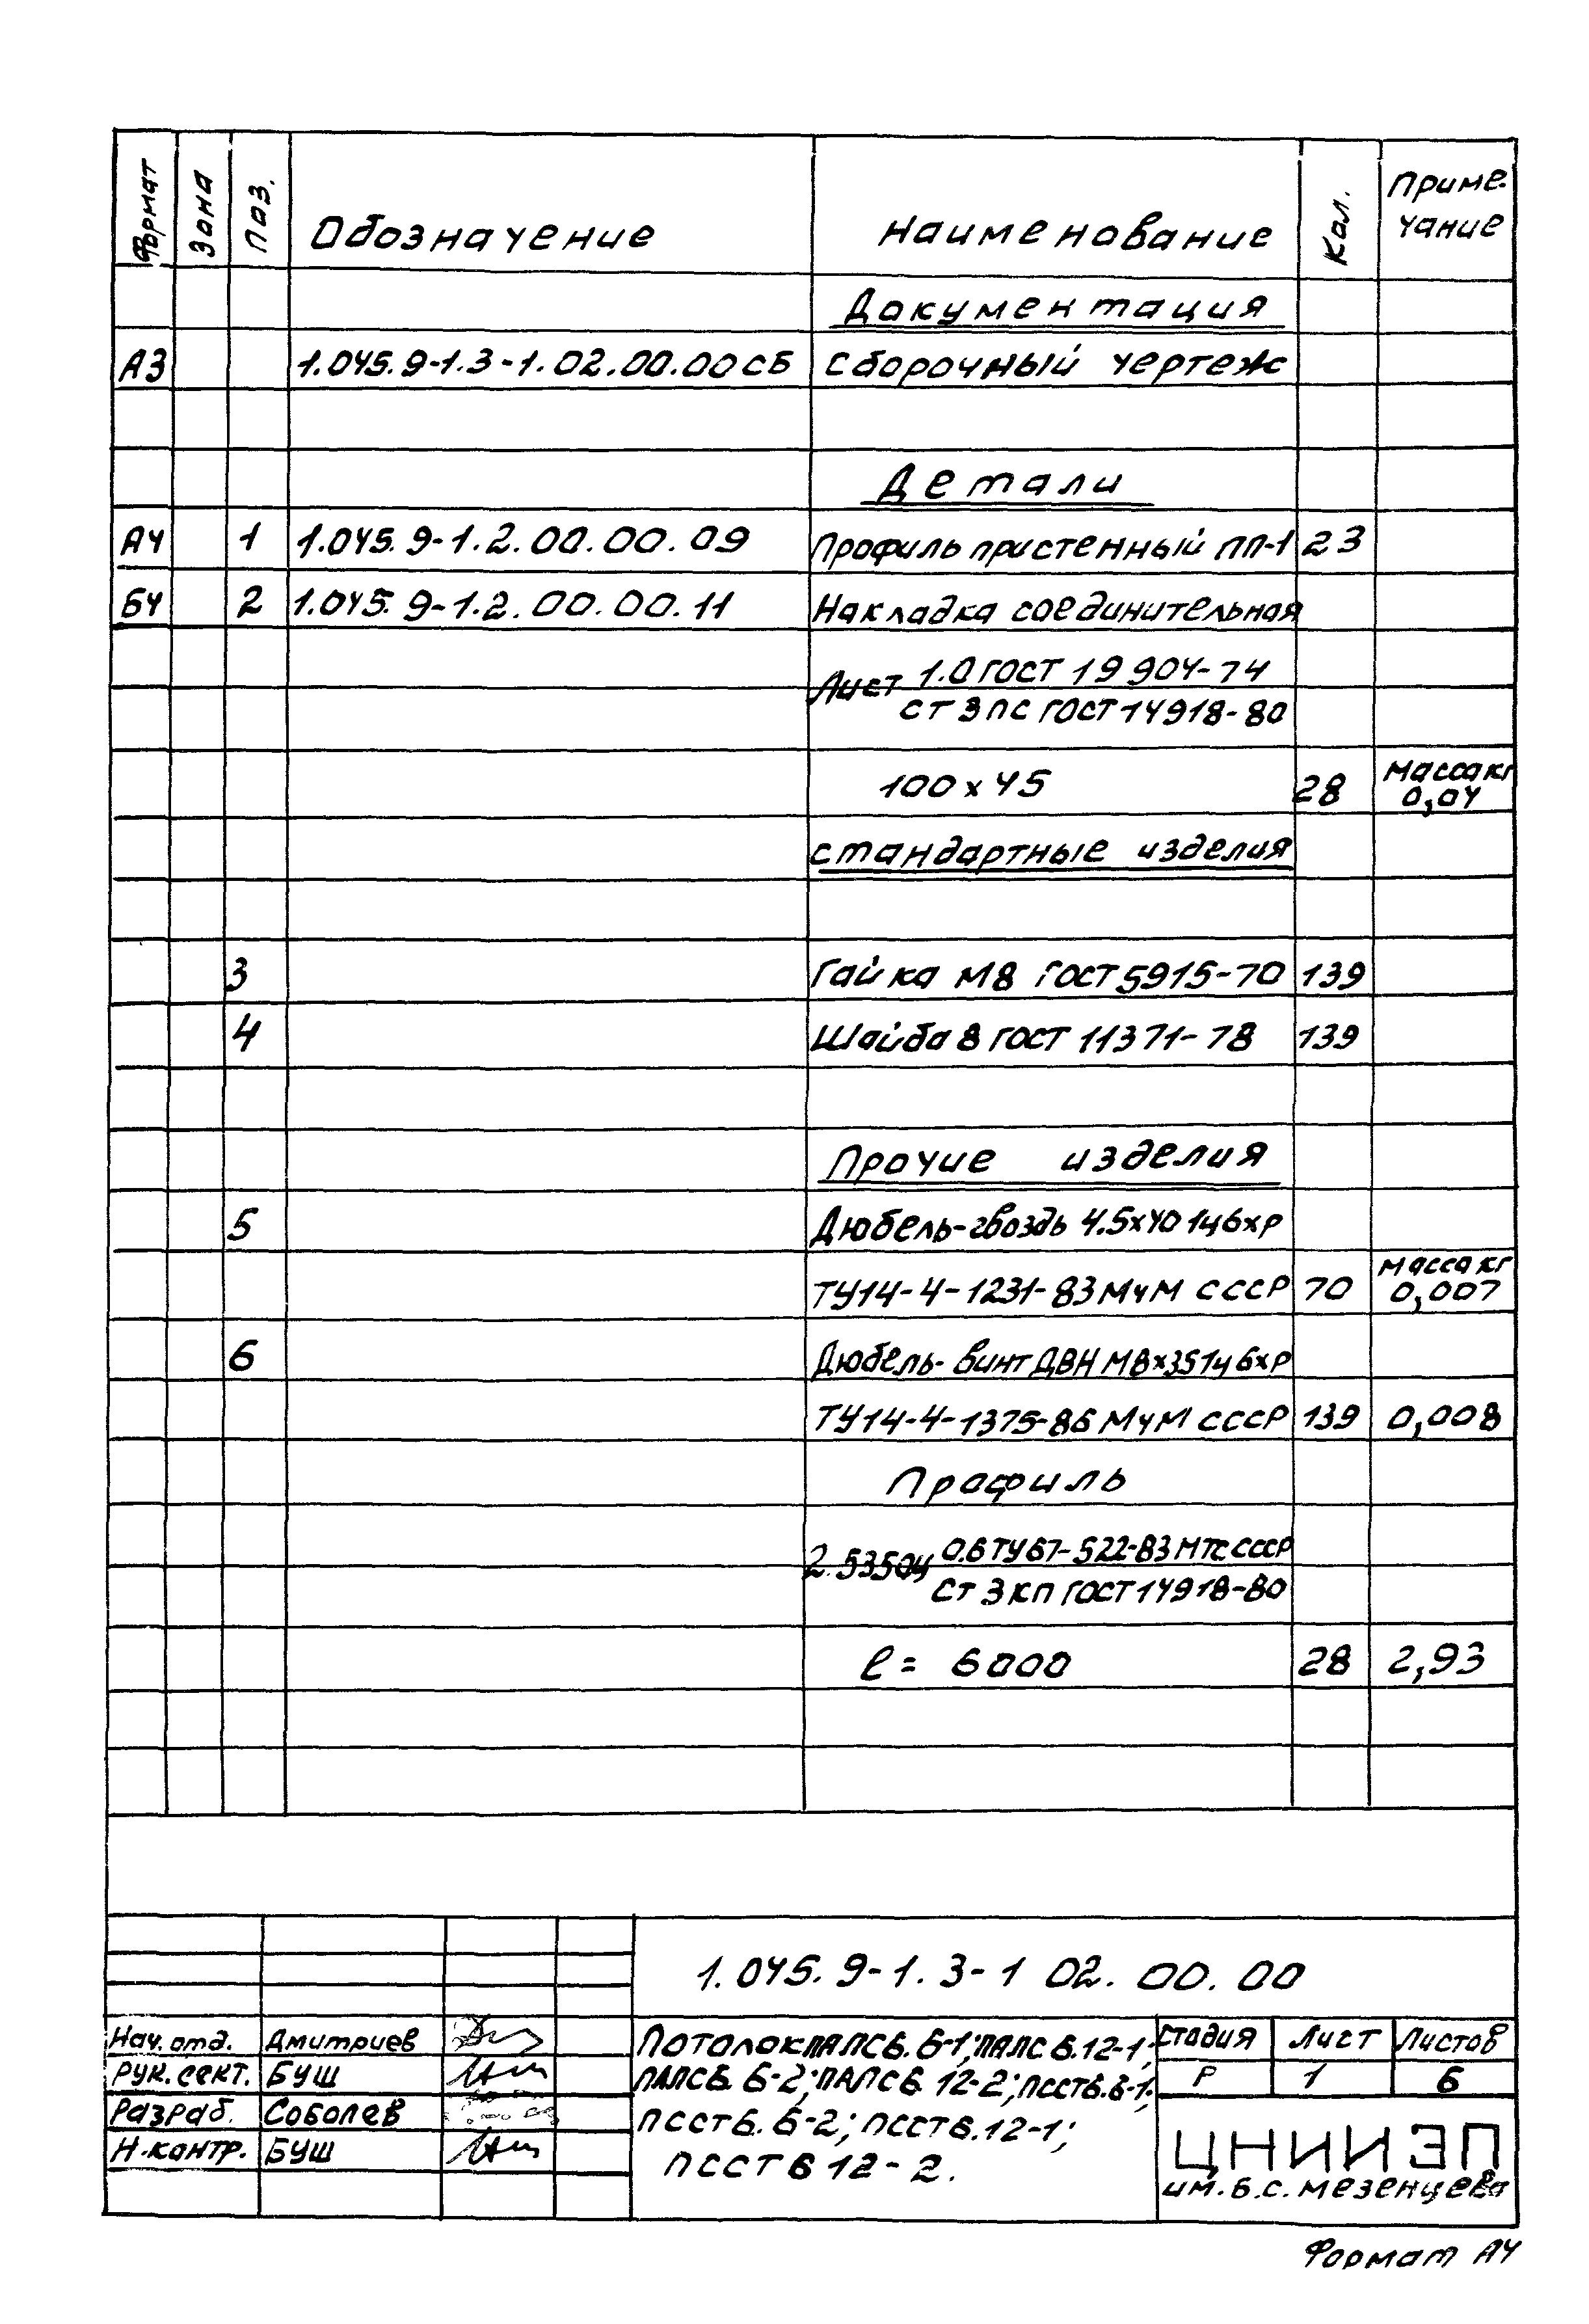 Формат Зона Поз. Обозначение Наименование Кол. Приме-
чание
Документация
А3 1.045.9-1.3-1.02.00.00СБ Сборочный чертеж
Детали
А4 1 1.045.9-1.2.00.00.09 Профиль пристенный ПП-1 23
БЧ 2 1.045.9-1.2.00.00.11 Накладка соединительная
Лист 1.0 ГОСТ 19904-74
Ст 3 пс ГОСТ 14918-80
100х45 28 Масса кг
0,04
Стандартные изделия
3 Гайка М8 ГОСТ 5915-70 139
4 Шайба 8 ГОСТ 11371-78 139
Прочие изделия
5 Дюбель-гвоздь 4.5х40 1ц6хр
ТУ14-4-1231-83 МчМ СССР 70 Масса кг
0,007
6 Дюбель-винт ДВН М8х35 1ц6хр
ТУ14-4-1375-86 МчМ СССР 139 0,008
Профиль
0.6 ТУ67-522-83 МТС СССР
Ст 3 кп ГОСТ 14918-80
ℓ= 6000 28 2,93
1.045.9-1.3-1 02.00.00
Нач. отд. Дмитриев
Рук. сект. Буш
Разраб. Соболев
Н.контр. Буш
Потолок ПАЛС6.6-1; ПАЛС6.12-1;
ПАЛС6.6-2; ПАЛС6.12-2; ПССТ6.6-1;
ПССТ6.6-2; ПССТ6.12-1;
ПССТ6 12-2.
Стадия Лист Листов
Р 1 6
ЦНИИЭП
им. Б.С. Мезенцева
Формат А4